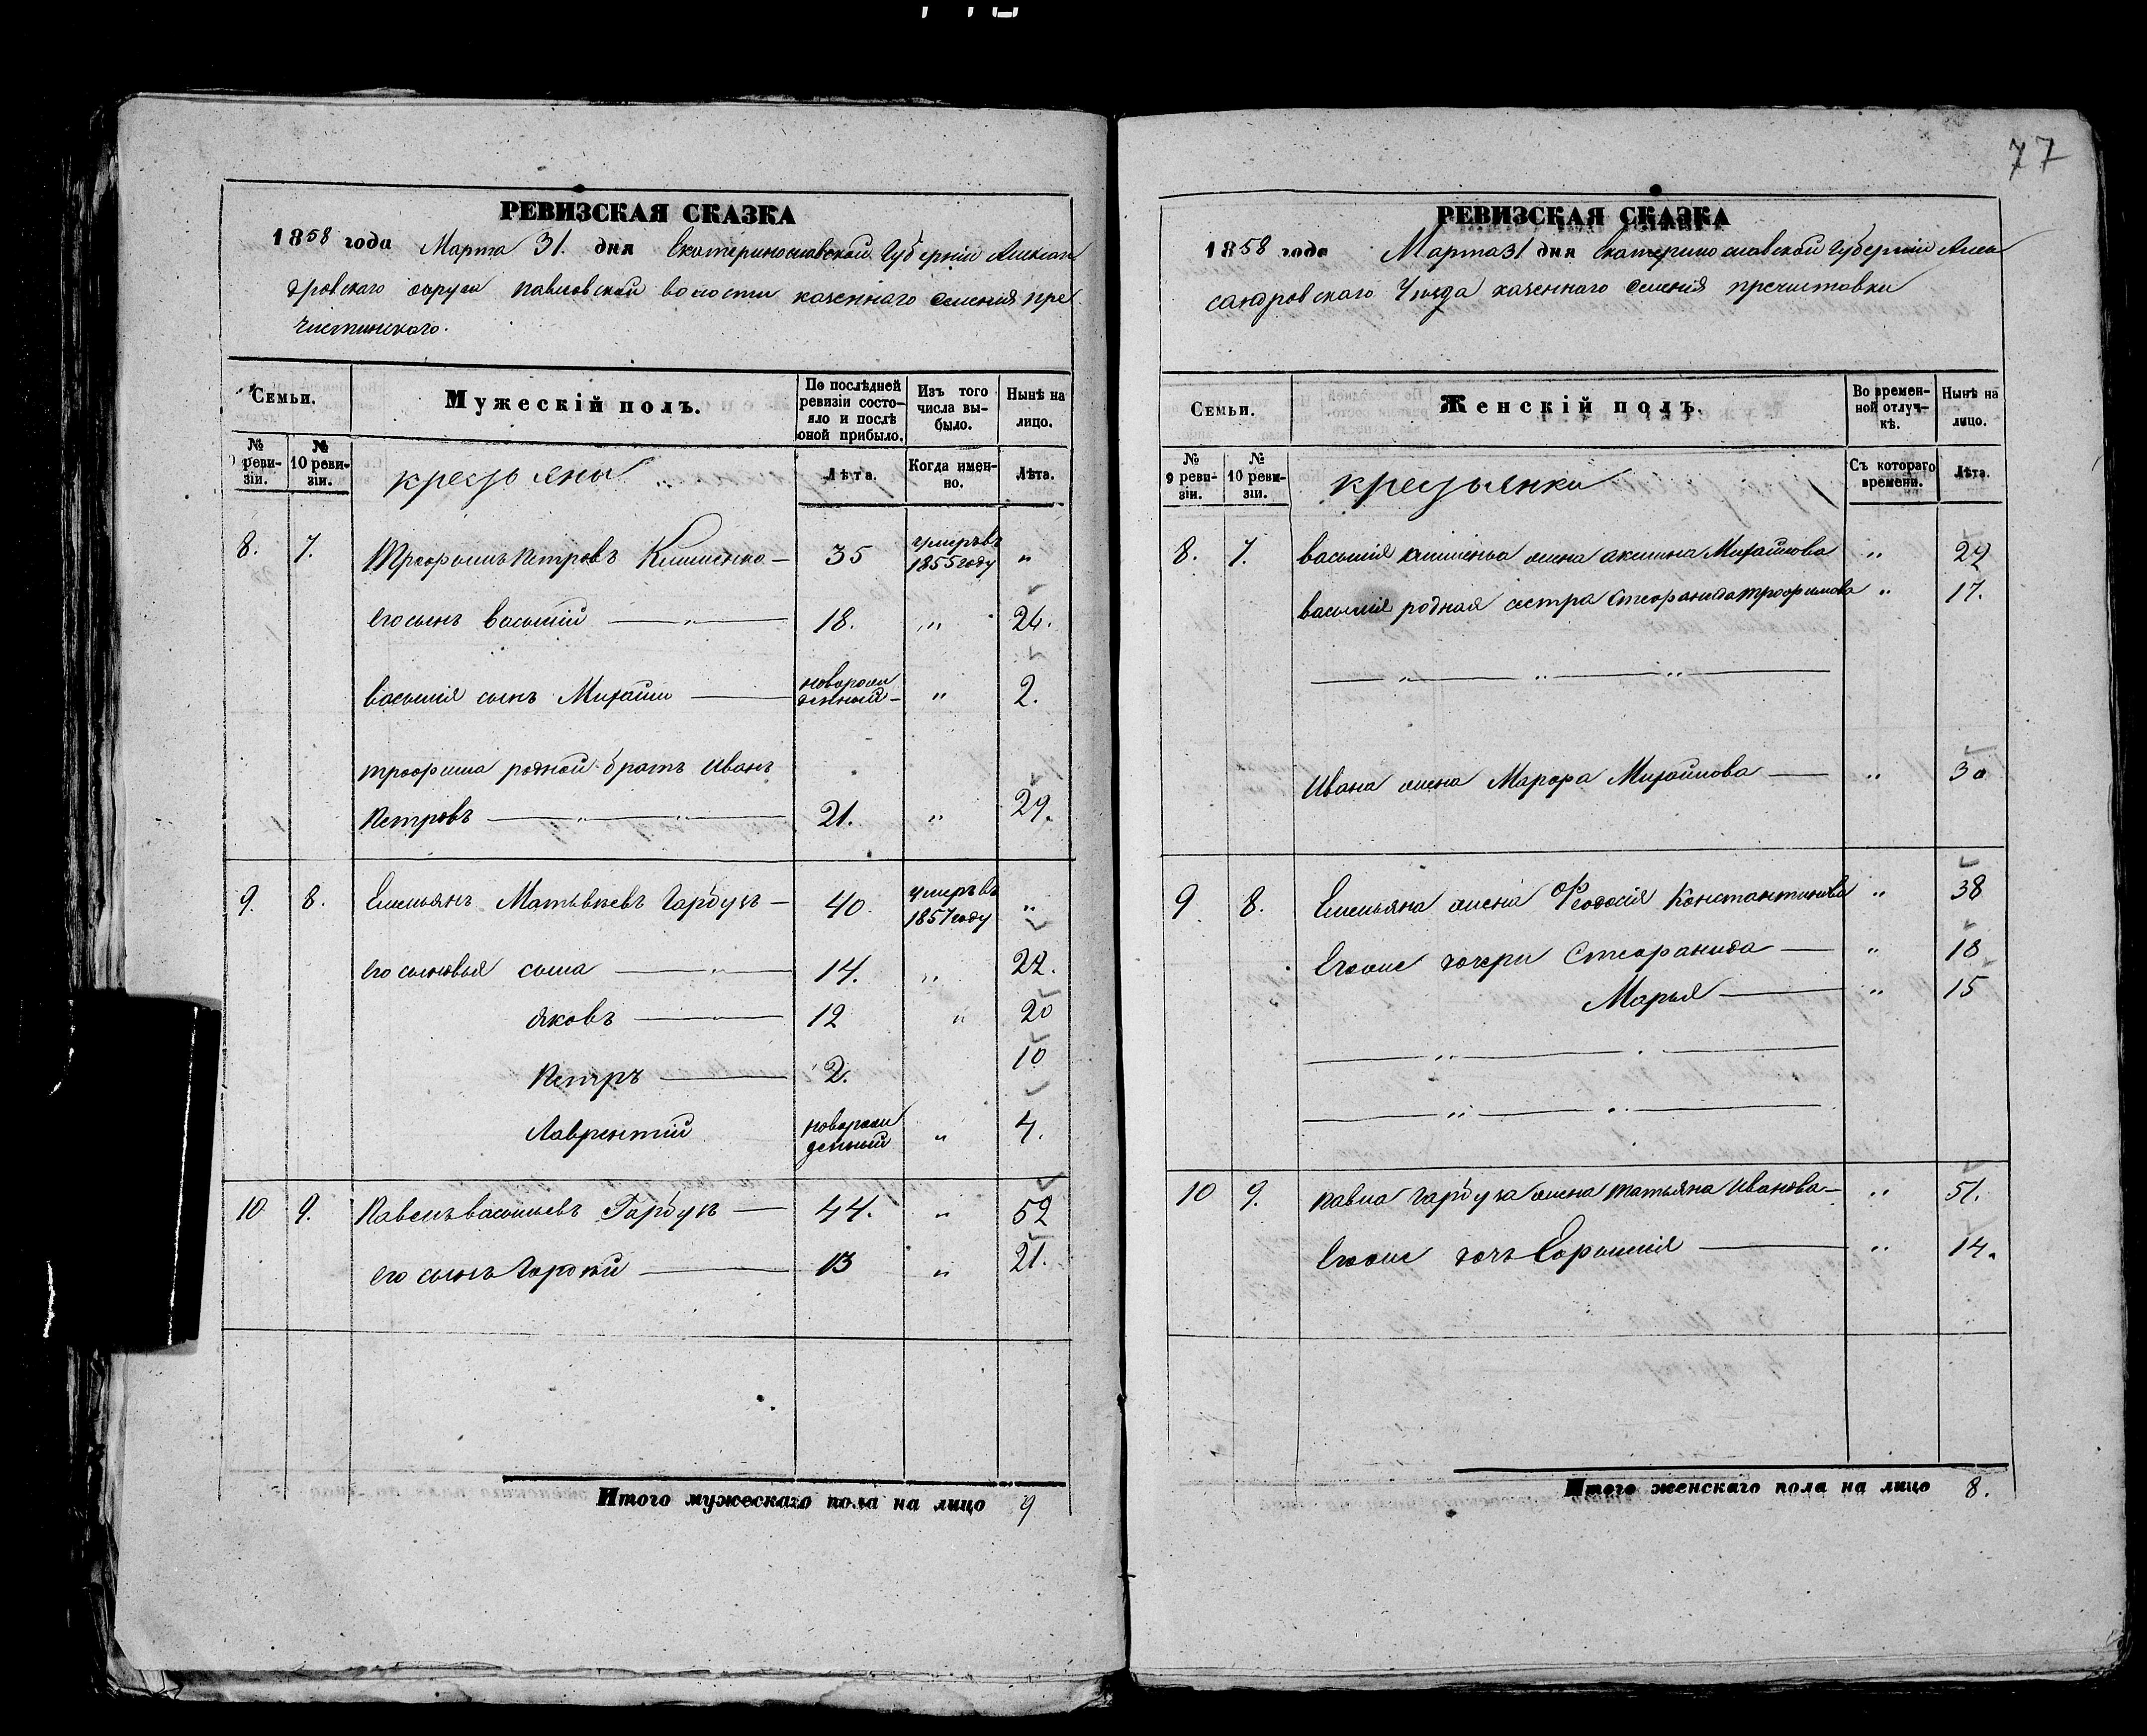 77
РЕВИЗСКАЯ СКАЗКА
1858 года Марта 31. дня Екатеринославской Губерніи Алексан
дровскаго округа павловской волости казеннаго селенія пре
чистинскаго.
Семьи.
Мужескій полъ.
По послѣдней ревизіи состояло и послѣ оной прибыло.
Изъ того числа выбыло.
Нынѣ на лицо.
№ 9 ревизіи.
№ 10 ревизіи.
крестьяны
Лѣта.
Когда именно.
Лѣта.
8. 7. Трофимъ Петровъ Клименко — 35 умеръ въ 1855 году "
его сынъ василій — 18. " 26.
василія сынъ Михаилъ — новорожденный — " 2.
трофима родной братъ иванъ
Петровъ — 21. " 29.
9. 8. Емельянъ Матвѣевъ Гарбузъ — 40. умеръ въ 1857 году "
его сыновья сома — 14. " 22.
яковъ — 12 " 20
Петръ — 2. 10
Лаврентій новорожденный " 4.
10 9. Павелъ васильевъ Гарбузъ — 44. " 52
его сынъ Гордѣй — 13 " 21.
Итого мужескаго пола на лицо 9
РЕВИЗСКАЯ СКАЗКА
1858 года Марта 31 дня Екатеринославской Губерніи Алек
сандровскаго Уѣзда казеннаго селенія пречистовки
Семьи.
Женскій полъ.
Во временной отлучкѣ.
Нынѣ на лицо.
№ 9 ревизіи.
№ 10 ревизіи.
крестьянки
Съ котораго времени.
Лѣта.
8. 7. василія клименка жена аксинья Михайлова " 27
василія родная сестра Стефанида трофимова " 17.
Ивана жена Марфа Михайлова — " 30
9 8. Емельяна жена Феодосія Константинова " 38
Егоже дочери Стефанида — " 18
Марья — " 15
10 9. павла гарбуза жена татьяна Иванова — " 51.
Егоже дочь Ефимія — " 14.
Итого женскаго пола на лицо 8.